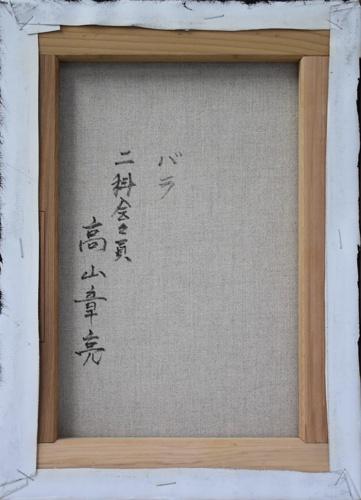 バラ
二科会々員
高山章亮